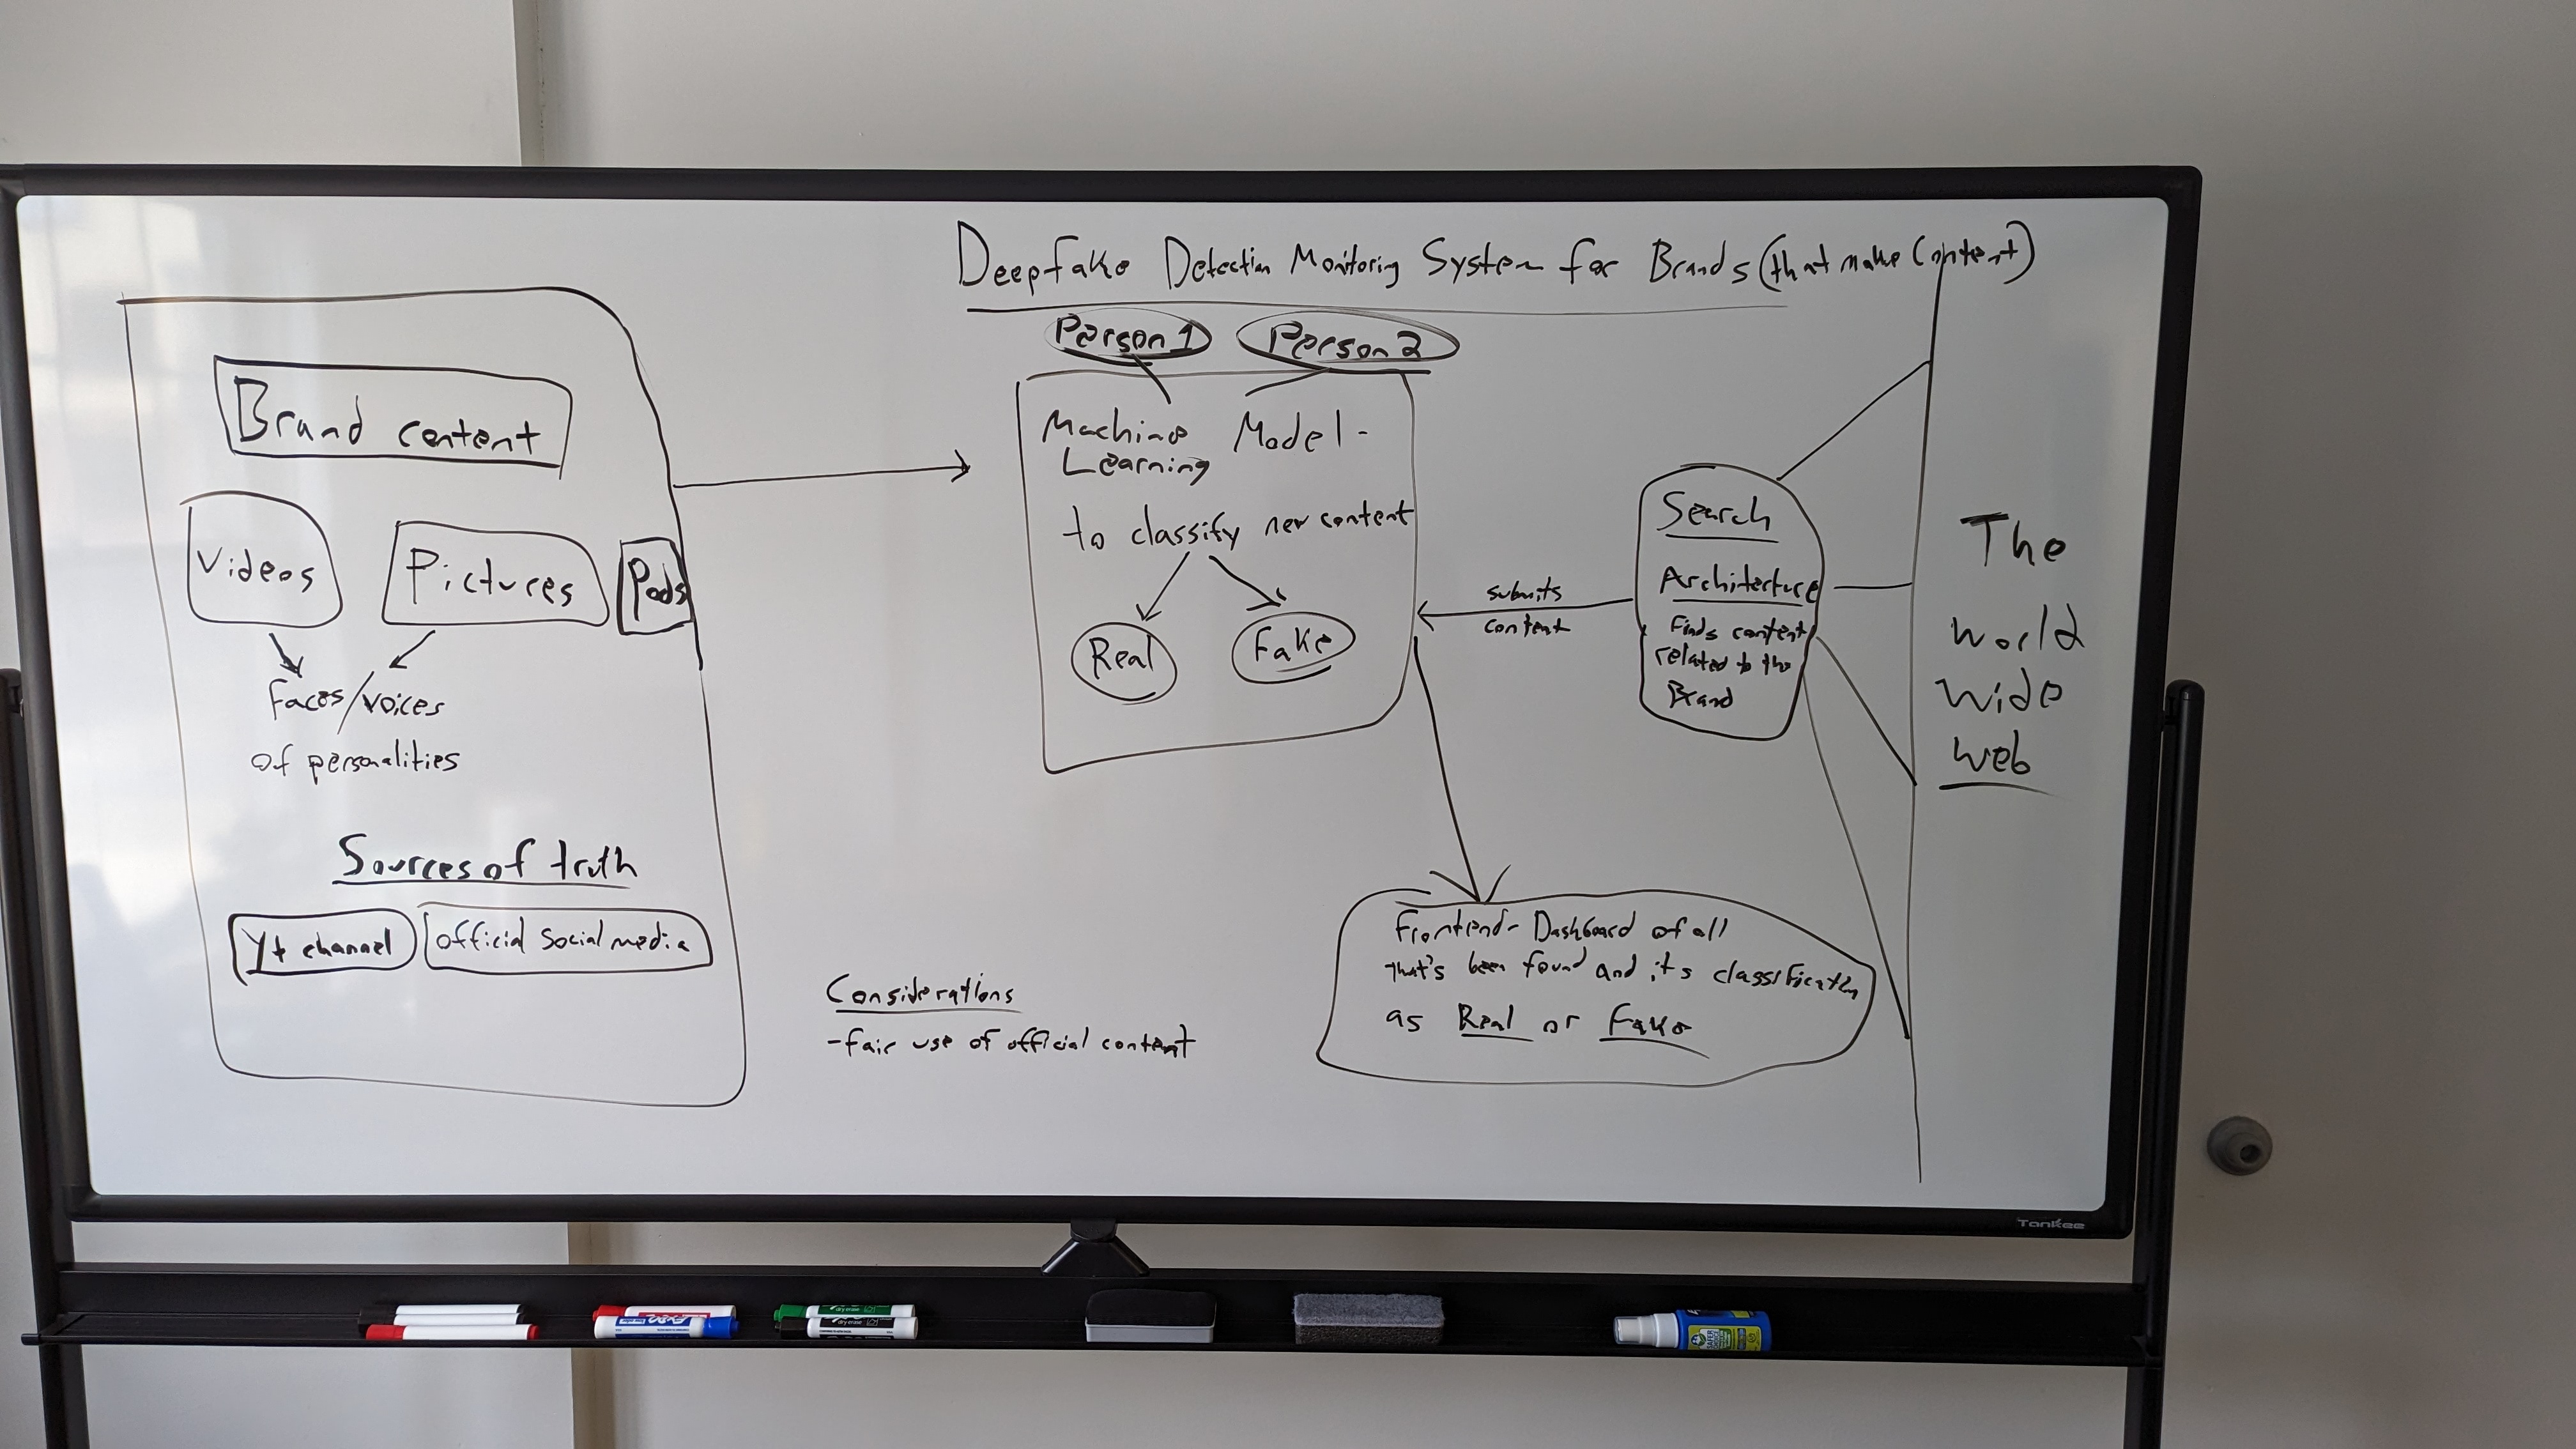 Deepfake Detection Monitoring System for Brands (that make content)
Brand content
Videos
Pictures
Pods
faces/voices
of personalities
Sources of truth
Yt channel
official social media
Person 1
Person 2
Machine Model -
Learning
to classify new content
Real
Fake
submits
content
Search
Architecture
Finds content
related to the
Brand
The
World
Wide
Web
Considerations
- fair use of official content
Frontend - Dashboard of all
that's been found and it's classification
as Real or Fake
Tankee
EXPO
dry erase
dry erase